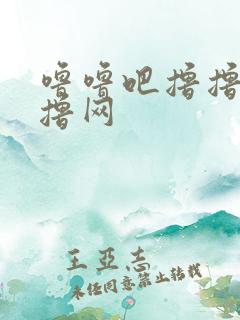 噜噜吧撸撸
撸网
王亞志
未经同意禁止转载